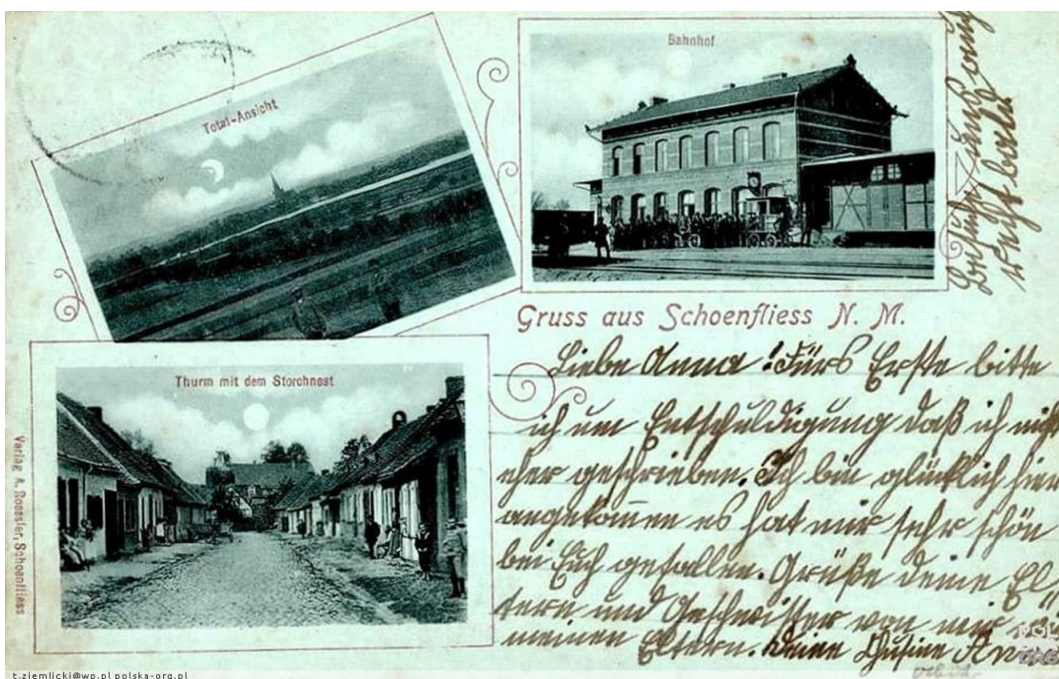 Total-Ansicht
Bahnhof
Gruss aus Schoenfliess N. M.
Thurm mit dem Storchnest
Verlag A. Roessler, Schoenfliess
Liebe Anna! Fürs Erste bitte
ich um Entschuldigung daß ich nicht
eher geschrieben. Ich bin glücklich hier
angekommen es hat mir sehr schön
bei Euch gefallen. Grüße deine El-
tern und Geschwister von mir
meinen Eltern. Deine Cusine Anna
recht bald
t.ziemlicki@wp.pl polska-org.pl